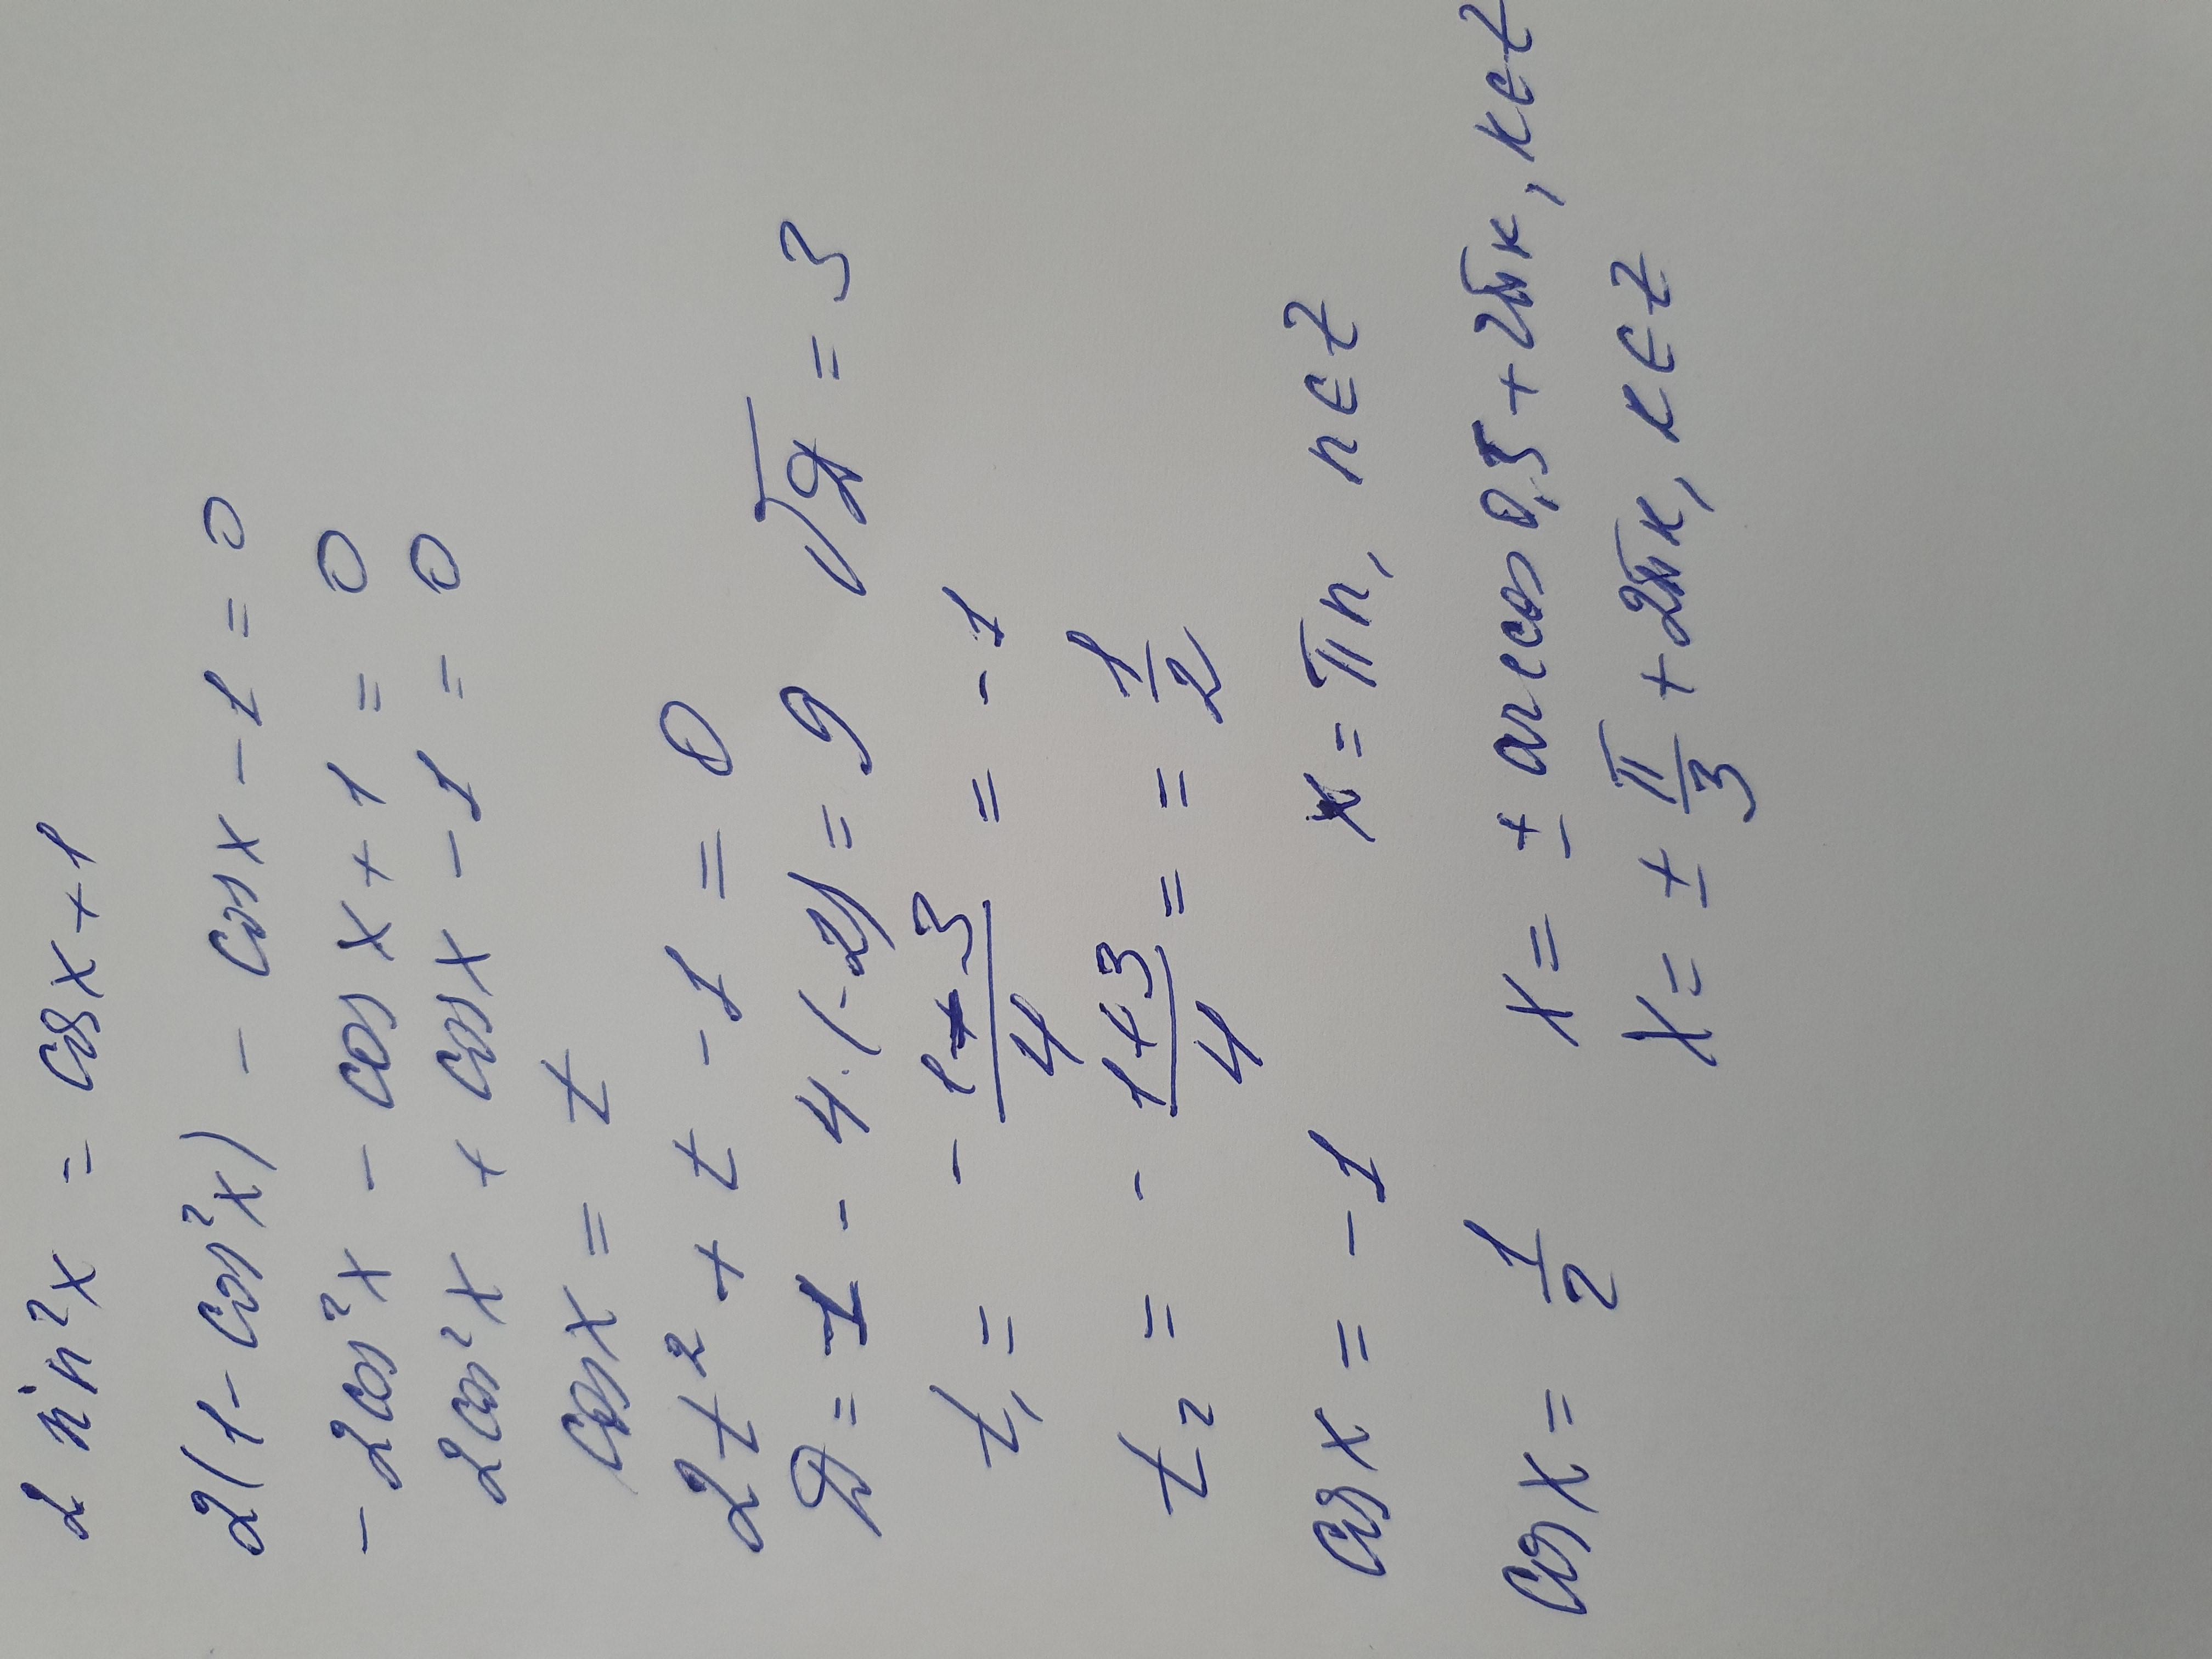 2 sin²x = cos x + 1
2(1 - cos²x) - cos x - 1 = 0
- 2cos²x - cos x + 1 = 0
2cos²x + cos x - 1 = 0
cos x = t
2t² + t - 1 = 0
D = 1 - 4·(-2) = 9 √D = 3
t₁ = (-1 - 3)/4 = -1
t₂ = (-1 + 3)/4 = = 1/2
cos x = -1 x = πn, n∈Z
cos x = 1/2 x = ± arccos 0,5 + 2πk, k∈Z
x = ± π/3 + 2πk, k∈Z